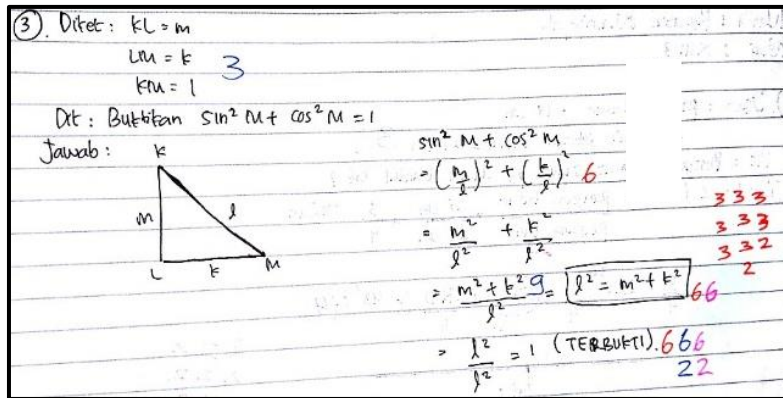 ③. Diket : KL = m
LM = k
KM = l
3
Dit : Buktikan sin² M + cos² M = 1
Jawab :
K
m
l
L
k
M
sin² M + cos² M
= (m/l)² + (k/l)² 6
= m²/l² + k²/l²
= (m² + k²)/l² 9 = l² = m² + k² 66
= l²/l² = 1 (TERBUKTI). 666
22
3 3 3
3 3 3
3 3 2
2